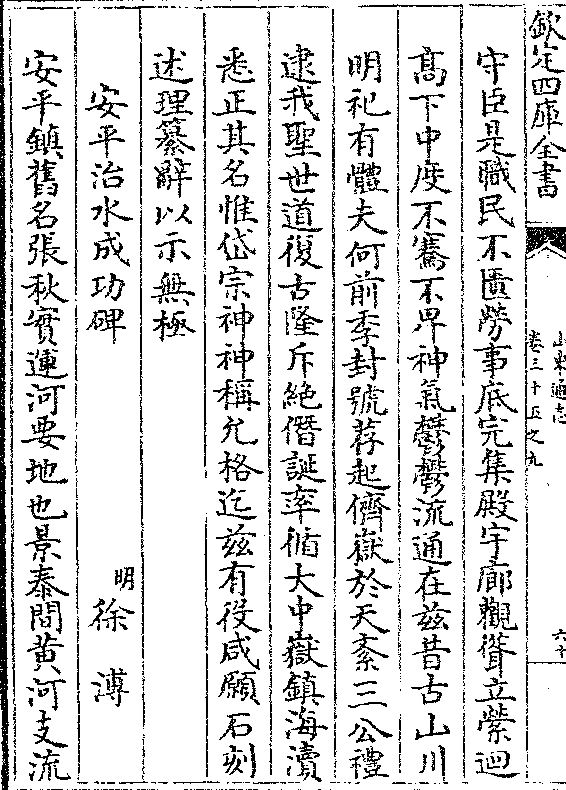 欽定四庫全書
山東通志
卷三十五之九
六十
守臣是職民不匱勞事底完集殿宇廊觀聳立縈迴
高下中度不騫不卑神氣鬱鬱流通在兹昔古山川
明祀有體夫何前季封號荐起儕嶽於天紊三公禮
逮我聖世道復古隆斥絶僭誕率循大中嶽鎮海瀆
悉正其名惟岱宗神神稱允格迄兹有役咸願石刻
述理纂辭以示無極
安平治水成功碑
明徐溥
安平鎮舊名張秋實運河要地也景泰間黄河支流